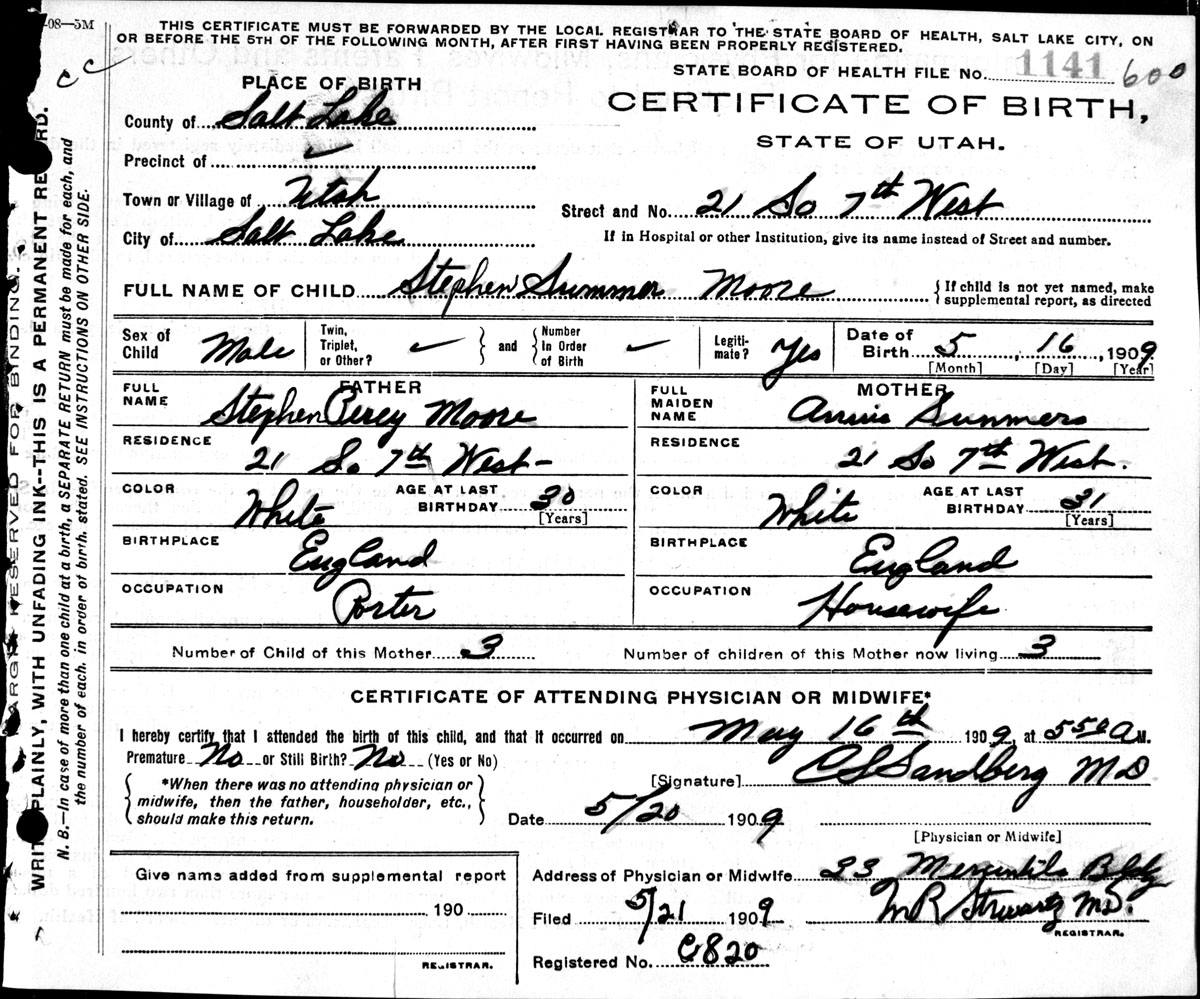 -08—5M
THIS CERTIFICATE MUST BE FORWARDED BY THE LOCAL REGISTRAR TO THE STATE BOARD OF HEALTH, SALT LAKE CITY, ON
OR BEFORE THE 5TH OF THE FOLLOWING MONTH, AFTER FIRST HAVING BEEN PROPERLY REGISTERED.
STATE BOARD OF HEALTH FILE No. 1141 600
CERTIFICATE OF BIRTH,
STATE OF UTAH.
PLACE OF BIRTH
County of Salt Lake
Precinct of ✓
Town or Village of Utah
City of Salt Lake
Street and No. 21 So 7th West
If in Hospital or other Institution, give its name instead of Street and number.
FULL NAME OF CHILD Stephen Summer Moore {If child is not yet named, make
supplemental report, as directed
Sex of Child Male
Twin, Triplet, or Other? ✓ } and { Number In Order of Birth ✓
Legiti-mate? Yes
Date of Birth 5, 16, 1909
[Month] [Day] [Year]
FATHER
FULL NAME Stephen Percy Moore
RESIDENCE
21 So 7th West—
COLOR White AGE AT LAST BIRTHDAY 30
[Years]
BIRTHPLACE England
OCCUPATION Porter
MOTHER
FULL MAIDEN NAME Annie Sunmers
RESIDENCE
21 So 7th West.
COLOR White AGE AT LAST BIRTHDAY 31
[Years]
BIRTHPLACE England
OCCUPATION Housewife
Number of Child of this Mother 3 Number of children of this Mother now living 3
CERTIFICATE OF ATTENDING PHYSICIAN OR MIDWIFE*
I hereby certify that I attended the birth of this child, and that it occurred on May 16th 1909, at 550 A M.
Premature No or Still Birth? No (Yes or No)
{ *When there was no attending physician or
midwife, then the father, householder, etc.,
should make this return. }
[Signature] C L Sandberg M D
Date 5/20 1909
[Physician or Midwife]
Give name added from supplemental report
190
REGISTRAR.
Address of Physician or Midwife 33 Mercantile Bldg
Filed 5/21 1909 M R Stewart M.D.
REGISTRAR.
Registered No. C820
MARGIN RESERVED FOR BINDING.
WRITE PLAINLY, WITH UNFADING INK--THIS IS A PERMANENT RECORD.
N. B.—In case of more than one child at a birth, a SEPARATE RETURN must be made for each, and
the number of each, in order of birth, stated. SEE INSTRUCTIONS ON OTHER SIDE.